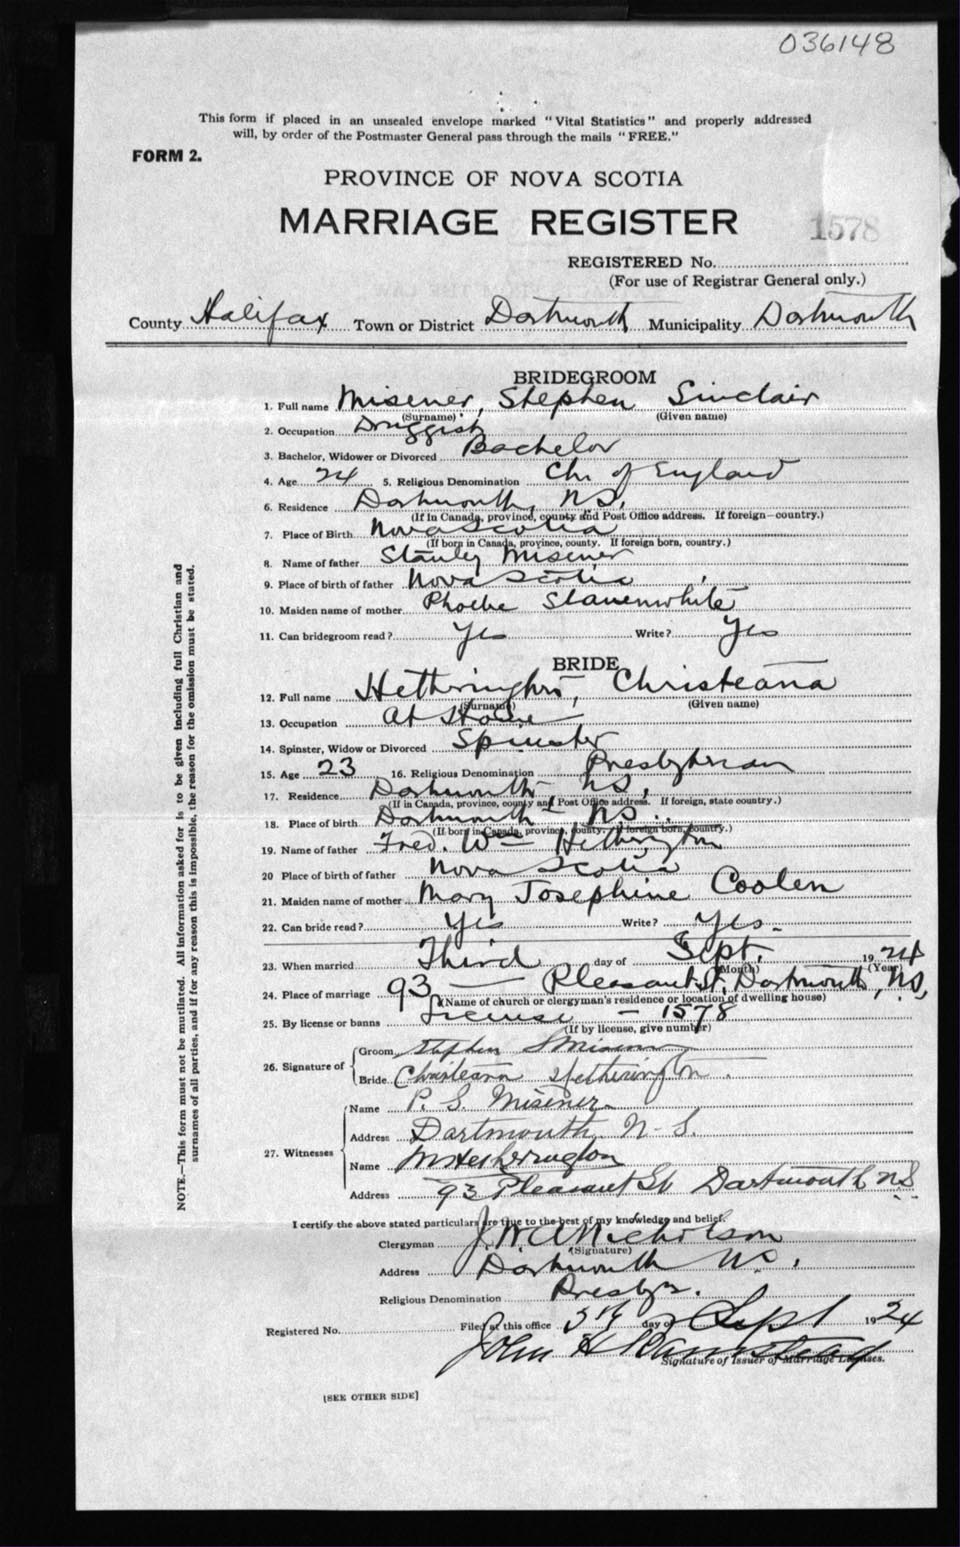 036148
This form if placed in an unsealed envelope marked "Vital Statistics" and properly addressed
will, by order of the Postmaster General pass through the mails "FREE."
FORM 2.
PROVINCE OF NOVA SCOTIA
MARRIAGE REGISTER
1578
REGISTERED No.
(For use of Registrar General only.)
County Halifax Town or District Dartmouth Municipality Dartmouth
BRIDEGROOM
1. Full name Misener, Stephen Sinclair
(Surname) (Given name)
2. Occupation Druggist
3. Bachelor, Widower or Divorced Bachelor
4. Age 24 5. Religious Denomination Ch. of England
6. Residence Dartmouth, N.S.
(If in Canada, province, county and Post Office address. If foreign—country.)
7. Place of Birth Nova Scotia
(If born in Canada, province, county. If foreign born, country.)
8. Name of father Stanley Misener
9. Place of birth of father Nova Scotia
10. Maiden name of mother Phoebe Slauenwhite
11. Can bridegroom read? Yes Write? Yes
BRIDE
12. Full name Hetherington, Christeana
(Surname) (Given name)
13. Occupation At Home
14. Spinster, Widow or Divorced Spinster
15. Age 23 16. Religious Denomination Presbyterian
17. Residence Dartmouth N.S.
(If in Canada, province, county and Post Office address. If foreign, state country.)
18. Place of birth Dartmouth N.S.
(If born in Canada, province, county. If foreign born, country.)
19. Name of father Fred. Wm Hetherington
20 Place of birth of father Nova Scotia
21. Maiden name of mother Mary Josephine Coolen
22. Can bride read? Yes Write? Yes.
23. When married Third day of Sept. 1924
(Month) (Year)
24. Place of marriage 93 — Pleasant St, Dartmouth, N.S,
(Name of church or clergyman's residence or location of dwelling house)
25. By license or banns License - 1578
(If by license, give number)
26. Signature of
Groom Stephen S Misener
Bride Christeana Hetherington.
27. Witnesses
Name P. S. Misener
Address Dartmouth, N-S.
Name M Hetherrington
Address 93 Pleasant St Dartmouth N.S
I certify the above stated particulars are true to the best of my knowledge and belief.
Clergyman J. W. A. Nicholson
(Signature)
Address Dartmouth N.S.
Religious Denomination Presby.
Registered No. Filed at this office 5th day of Sept 1924
John H
Signature of Issuer of Marriage Licenses.
[SEE OTHER SIDE]
NOTE.—This form must not be mutilated. All information asked for is to be given including full Christian and
surnames of all parties, and if for any reason this is impossible, the reason for the omission must be stated.